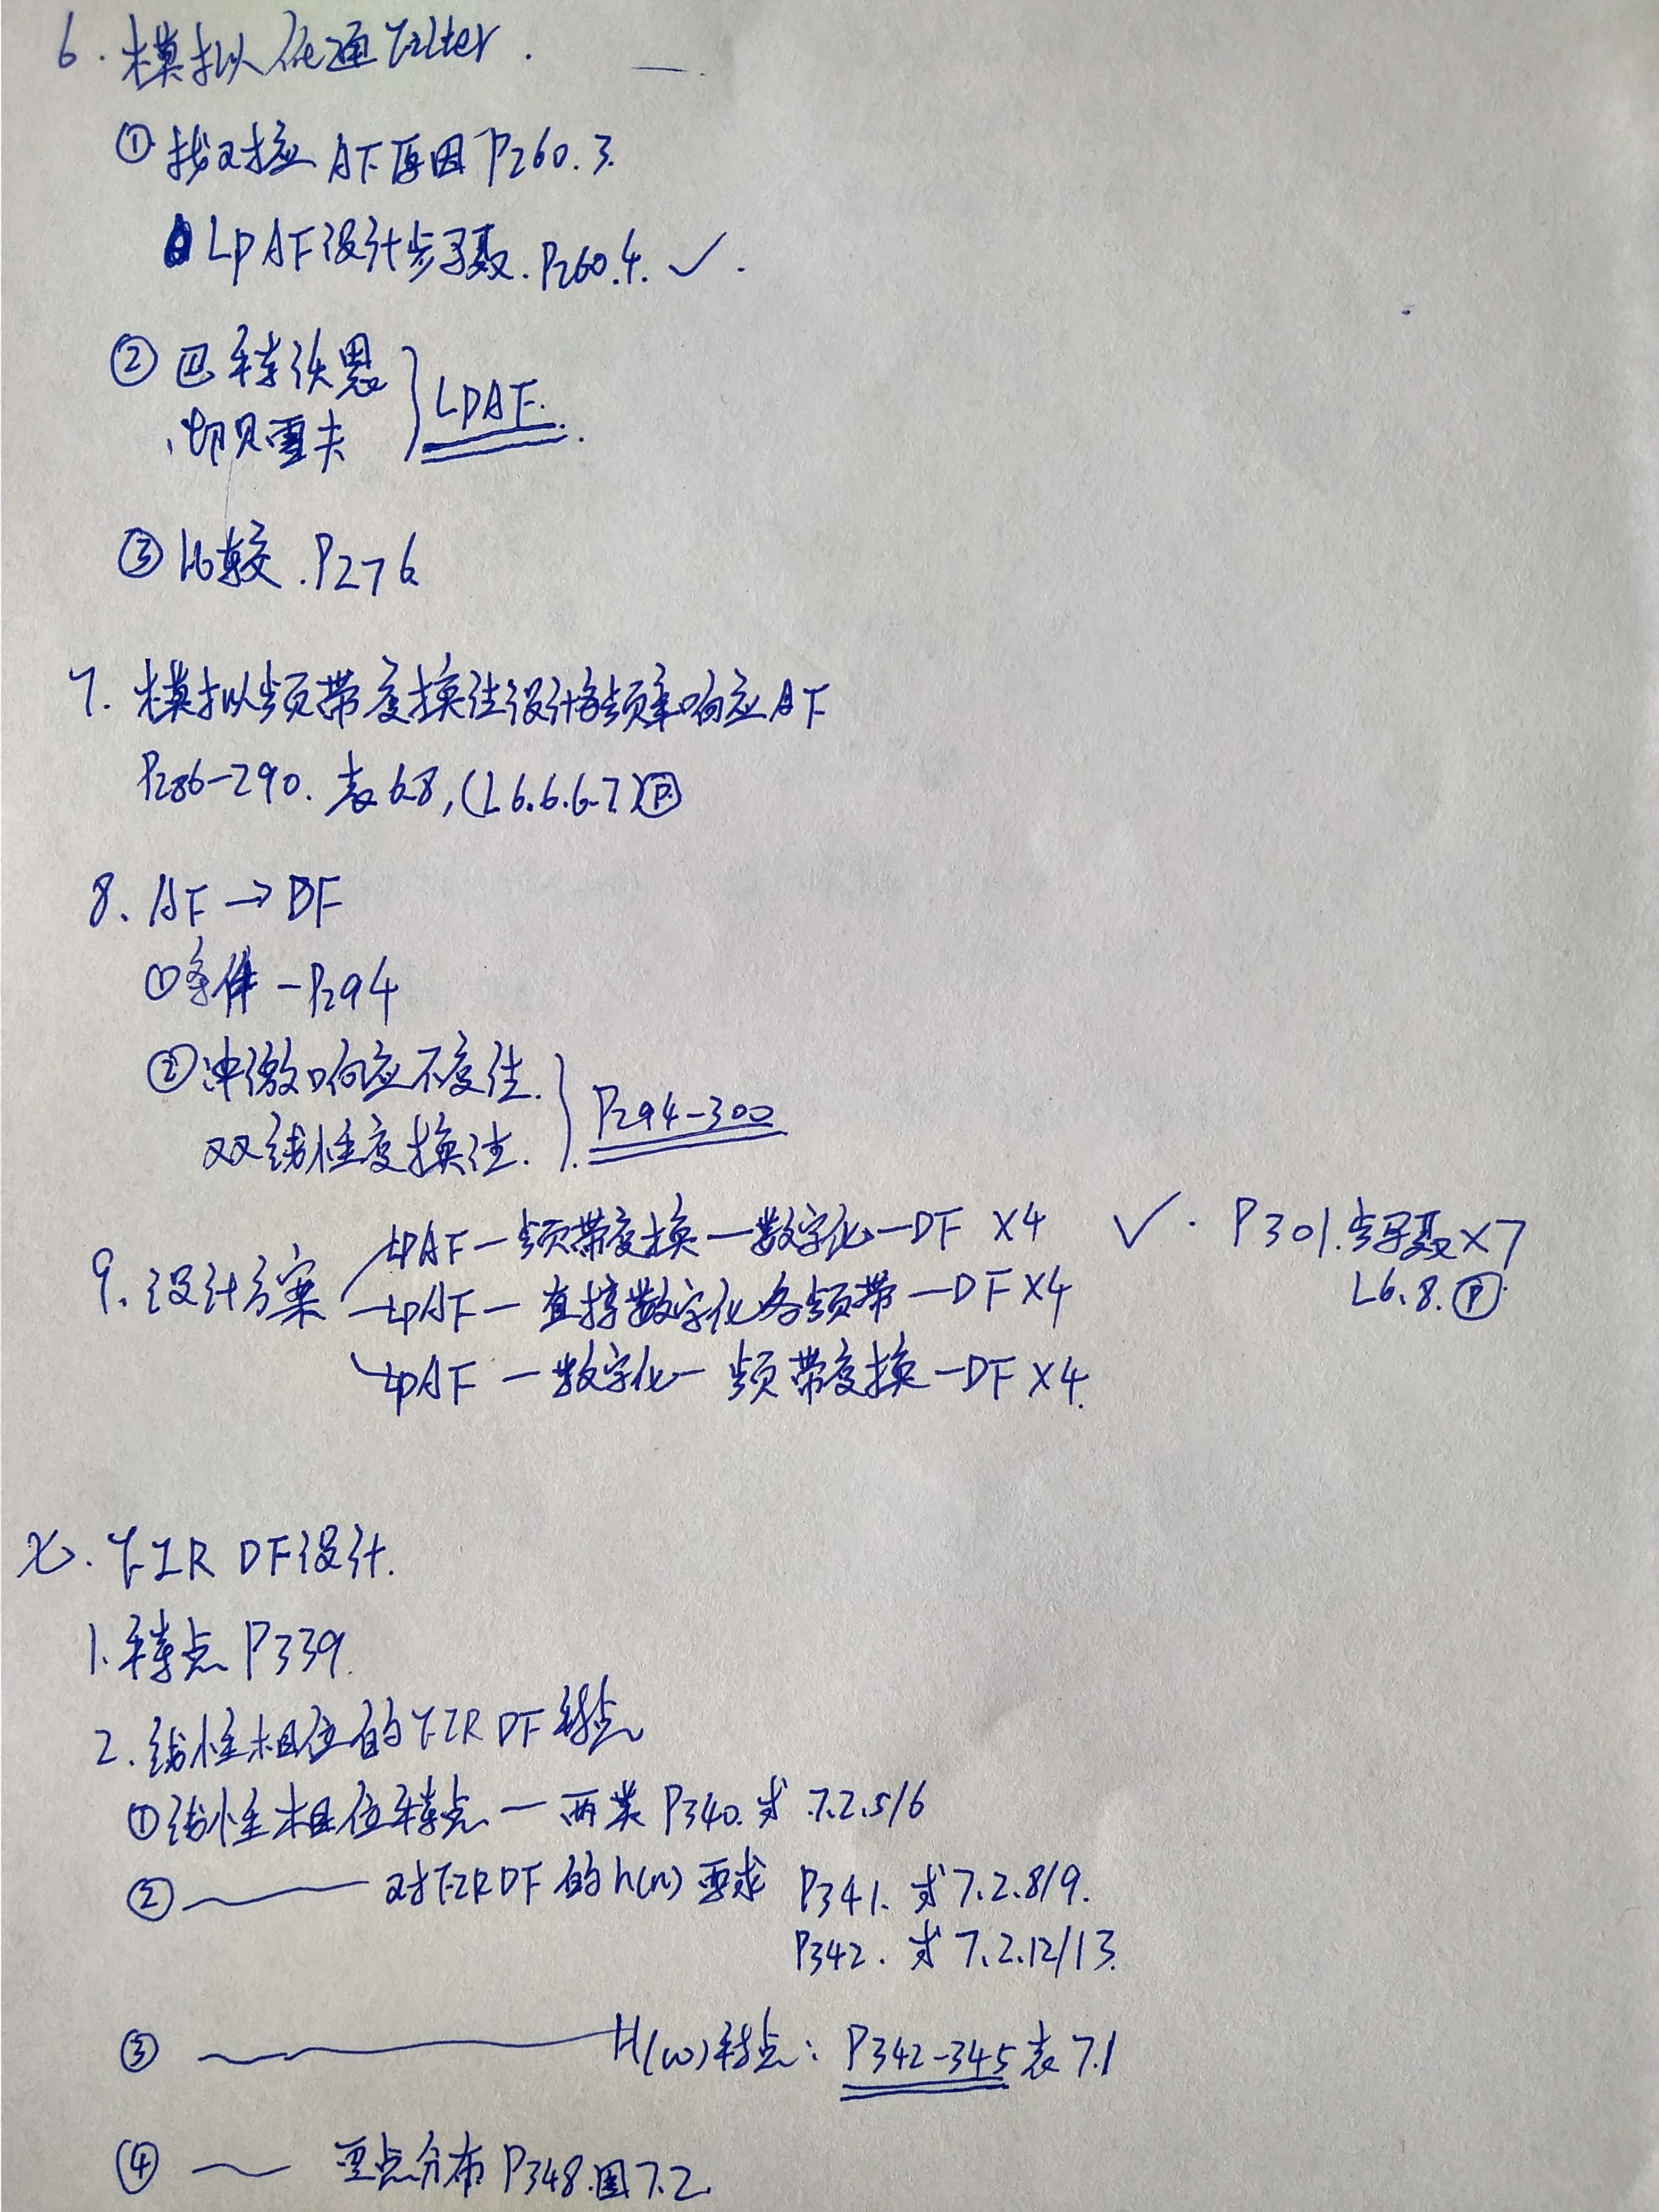 6. 模拟低通Filter.
① 找对应AF原因P260.3.
LPAF设计步骤.P260.4. ✓.
② 巴特沃思
切贝雪夫 } LPAF.
③ 比较.P276
7. 模拟频带变换法设计各频率响应AF
P286-290. 表6.8,(L6.6.6.7)Ⓟ
8. AF→DF
①条件-P294
②冲激响应不变法.
双线性变换法. } P294-300
9. 设计方案
LPAF—频带变换—数字化—DF X4 ✓. P301.步骤X7
LPAF—直接数字化各频带—DF X4 L6.8.Ⓟ
LPAF—数字化—频带变换—DF X4.
七. FIR DF设计.
1. 特点 P339.
2. 线性相位的FIR DF特点
①线性相位特点—两类 P340. 式 7.2.5/6
②——— 对FIRDF的h(n)要求 P341. 式7.2.8/9.
P342. 式7.2.12/13.
③ ——— H(ω)特点: P342-345 表7.1
④ —— 零点分布P348.图7.2.